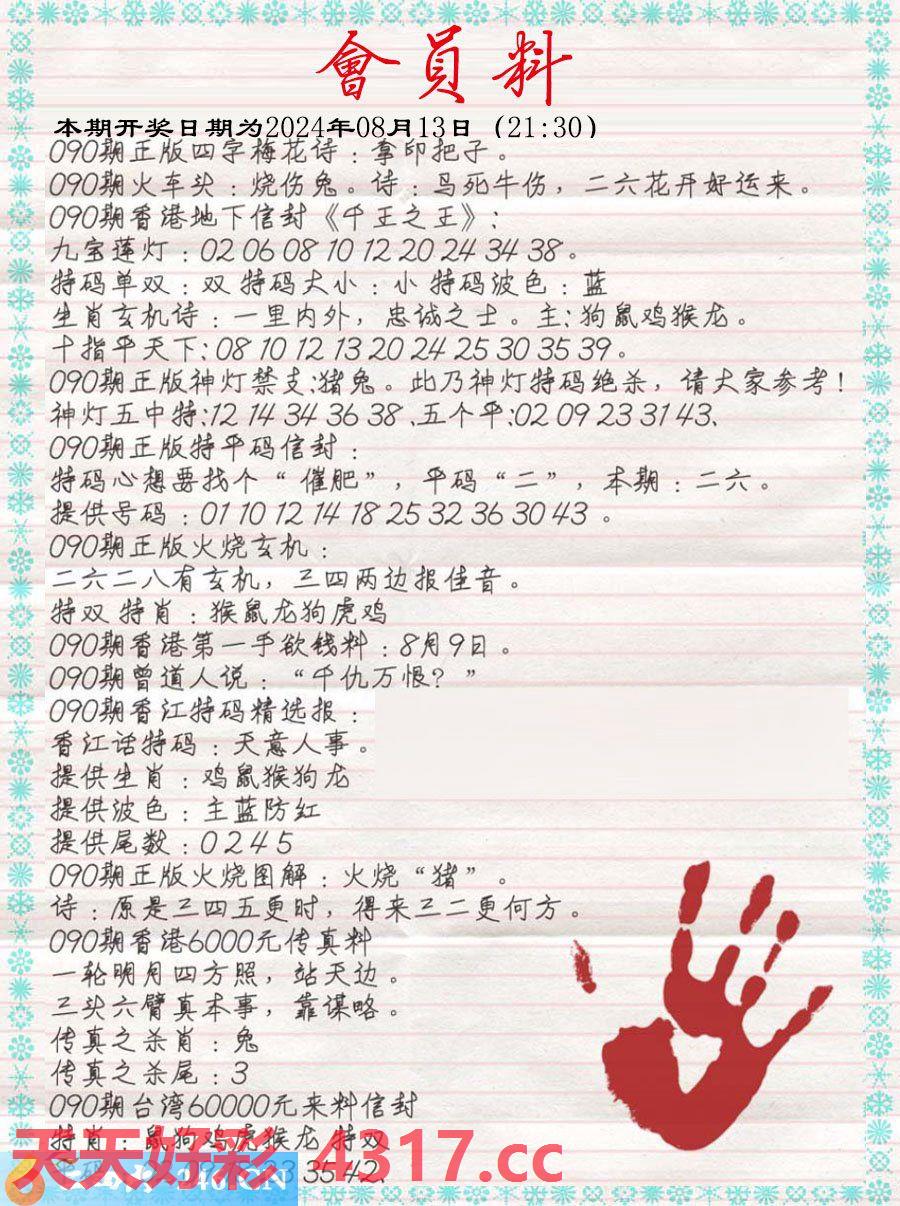 會員料
本期开奖日期为2024年08月13日（21:30）
090期正版四字梅花诗：拿印把子。
090期火车头：烧伤兔。诗：鸟死牛伤，二六花开好运来。
090期香港地下信封《千王之王》：
九宝莲灯：02 06 08 10 12 20 24 34 38。
特码单双：双 特码大小：小 特码波色：蓝
生肖玄机诗：一里内外，忠诚之士。主：狗鼠鸡猴龙。
十指平天下：08 10 12 13 20 24 25 30 35 39。
090期正版神灯禁支：猪兔。此乃神灯特码绝杀，请大家参考！
神灯五中特：12 14 34 36 38 、五个平：02 09 23 31 43、
090期正版特平码信封：
特码心想要找个“ 催肥”，平码“二”，本期：二六。
提供号码：01 10 12 14 18 25 32 36 30 43 。
090期正版火烧玄机：
二六二八有玄机，三四两边报佳音。
特双 特肖：猴鼠龙狗虎鸡
090期香港第一手欲钱料：8月9日。
090期曾道人说：“千仇万恨？”
090期香江特码精选报：
香江话特码：天意人事。
提供生肖：鸡鼠猴狗龙
提供波色：主蓝防红
提供尾数：0 2 4 5
090期正版火烧图解：火烧“猪”。
诗：原是三四五更时，得来三二更何方。
090期香港6000元传真料
一轮明月四方照，站天边。
三头六臂真本事，靠谋略。
传真之杀肖：兔
传真之杀尾：3
090期台湾60000元来料信封
特肖：鼠狗鸡虎猴龙 特双
天天好彩 4317.cc
35 42、